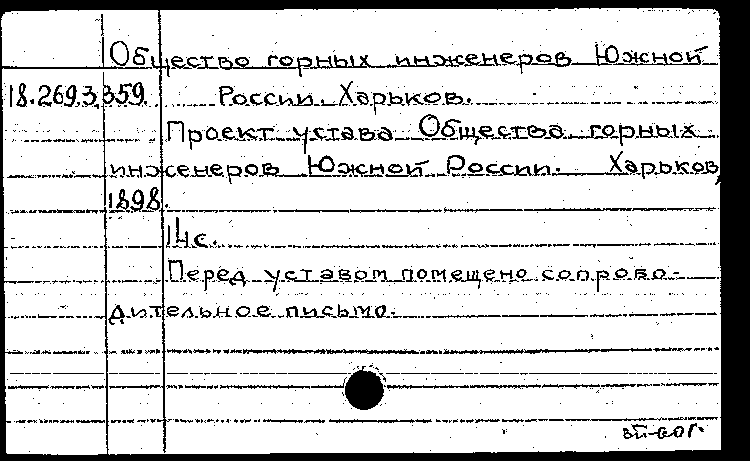 Общество горных инженеров Южной
18.269.3.359. России. Харьков.
Проект устава Общества горных
инженеров Южной России. Харьков,
1898.
14с.
Перед уставом помещено сопрово-
дительное письмо.